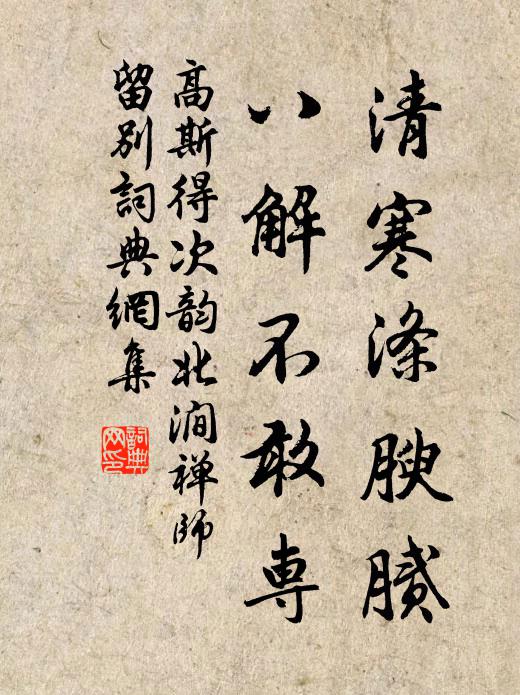 清寒滌腴膩
八解不敢専
高斯得次韵北澗禅師
留別詞典網集
詞典
网印